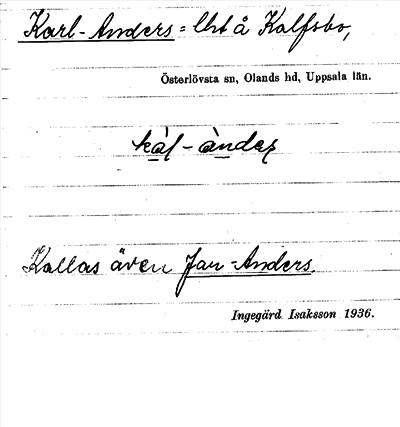 Karl-Anders = Urt å Kalfsbo,
Österlövsta sn, Olands hd, Uppsala län.
kàl-àndeʂ
Kallas även Jan-Anders.
Ingegärd Isaksson 1936.